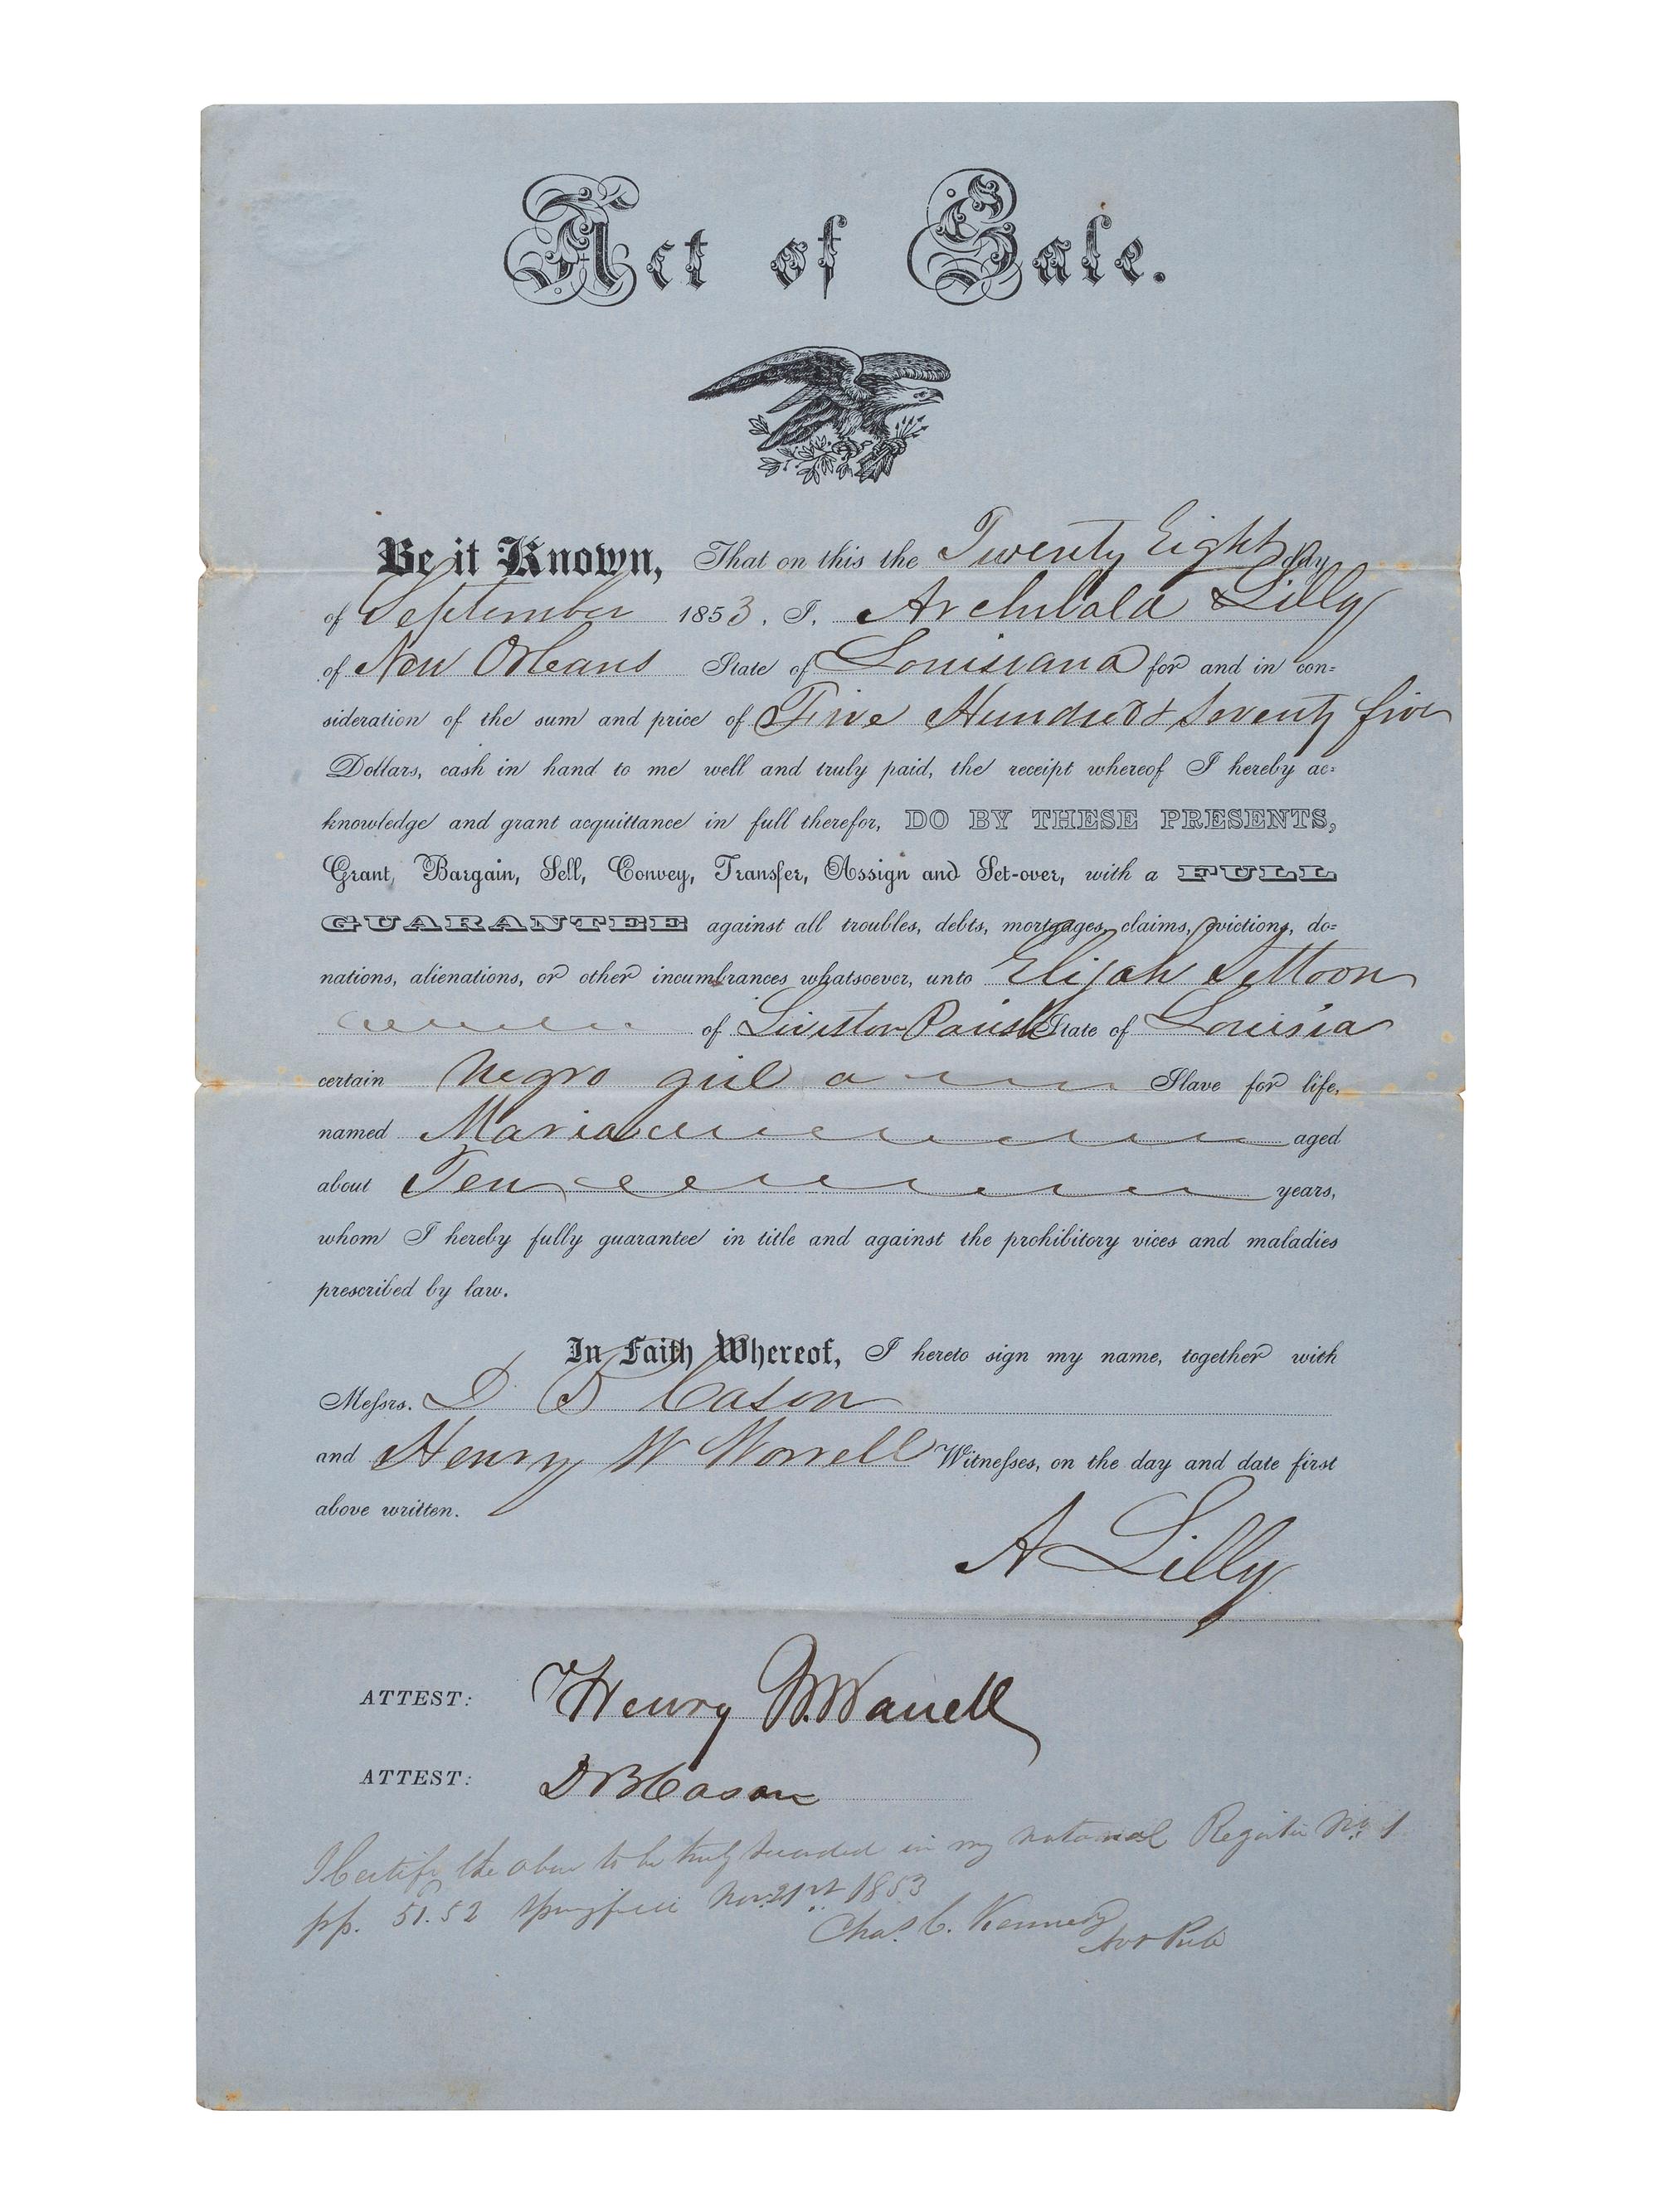 Act of Sale.
Be it Known, That on this the Twenty Eight day
of September 1853. I, Archibald Lilly
of New Orleans State of Louisiana for and in con=
sideration of the sum and price of Five Hundred & Seventy five
Dollars, cash in hand to me well and truly paid, the receipt whereof I hereby ac=
knowledge and grant acquittance in full therefor, DO BY THESE PRESENTS,
Grant, Bargain, Sell, Convey, Transfer, Assign and Set-over, with a FULL
GUARANTEE against all troubles, debts, mortgages, claims, evictions, do=
nations, alienations, or other incumbrances whatsoever, unto Elijah Settoon
of Liviston Parish State of Louisia
certain Negro girl a Slave for life,
named Maria aged
about Ten years,
whom I hereby fully guarantee in title and against the prohibitory vices and maladies
prescribed by law.
In Faith Whereof, I hereto sign my name, together with
Messrs. D B Cason
and Henry W Worrell Witnesses, on the day and date first
above written.
A Lilly
ATTEST: Henry W. Warrell
ATTEST: D B Cason
I Certify the above to be truly recorded in my notarial Register No. 1
pp. 51.52 Springfield Nov. 21st 1853
Chas. C. Kennedy
Not Pub